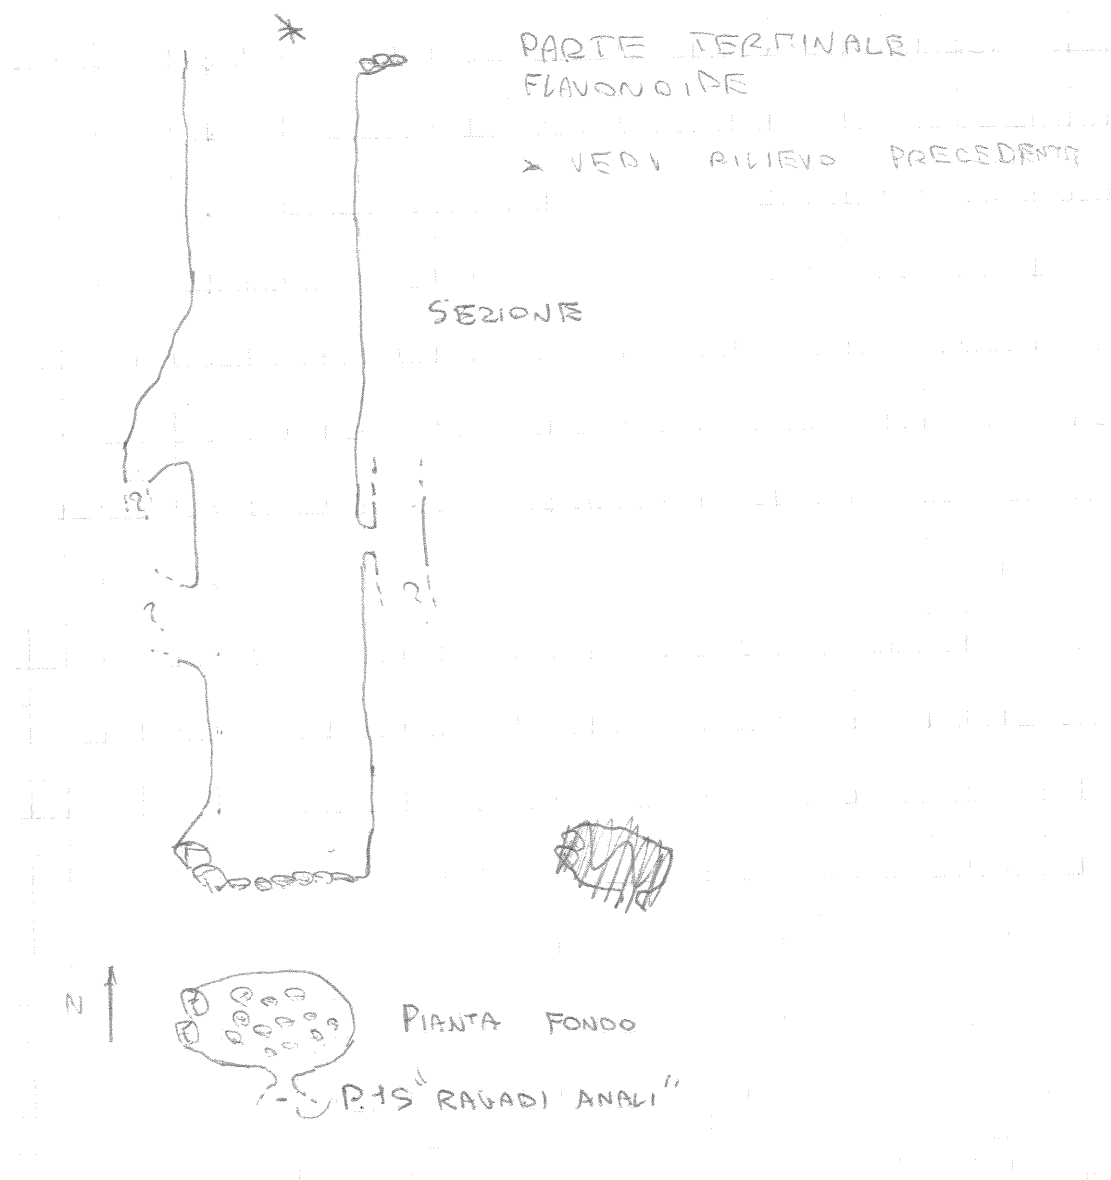 *
PARTE TERMINALE
FLAVONOIDE
* VEDI RILIEVO PRECEDENTE
SEZIONE
?
?
?
N
PIANTA FONDO
P.15 "RAGADI ANALI"